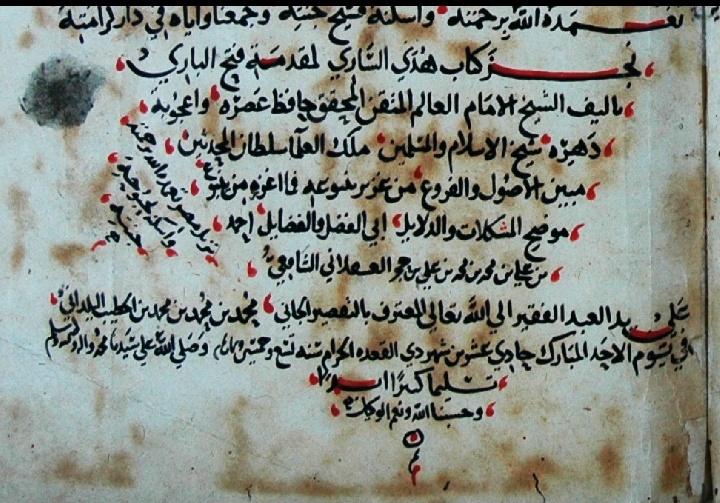 تغمده الله برحمته واسكنه فسيح جنته وجمعنا واياه في دار كرامته
نجز كتاب هدي الساري لمقدمة فتح الباري
تاليف الشيخ الامام العالم المتقن المحقق حافظ عصره واعجوبة
دهره شيخ الاسلام والمسلمين ملك العلما سلطان المحدثين
مبين الاصول والفروع من عزيز بنوعه فما اغزه من ينبوع
موضح المشكلات والدلايل ابي الفضل والفضايل احمد
بن علي بن محمد بن محمد بن علي بن حجر العسقلاني الشافعي
علي يد العبد الفقير الي الله تعالي المعترف بالتقصير الجاني محمد بن محمد بن محمد بن الخطيب البلداني
في يوم الاحد المبارك حادي عشرين شهر ذي القعده الحرام سنه تسع وخمسين وصلي الله علي سيدنا محمد واله وسلم
تسليما كثيرا
وحسبنا الله ونعم الوكيل